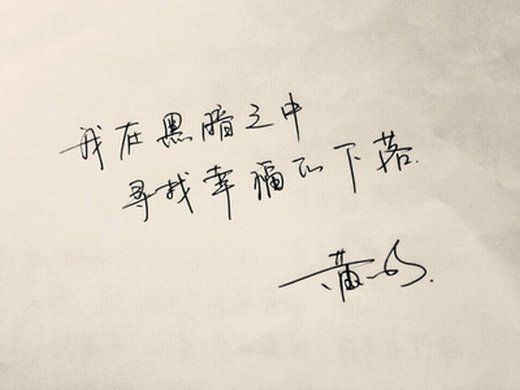 我在黑暗之中
寻找幸福的下落.